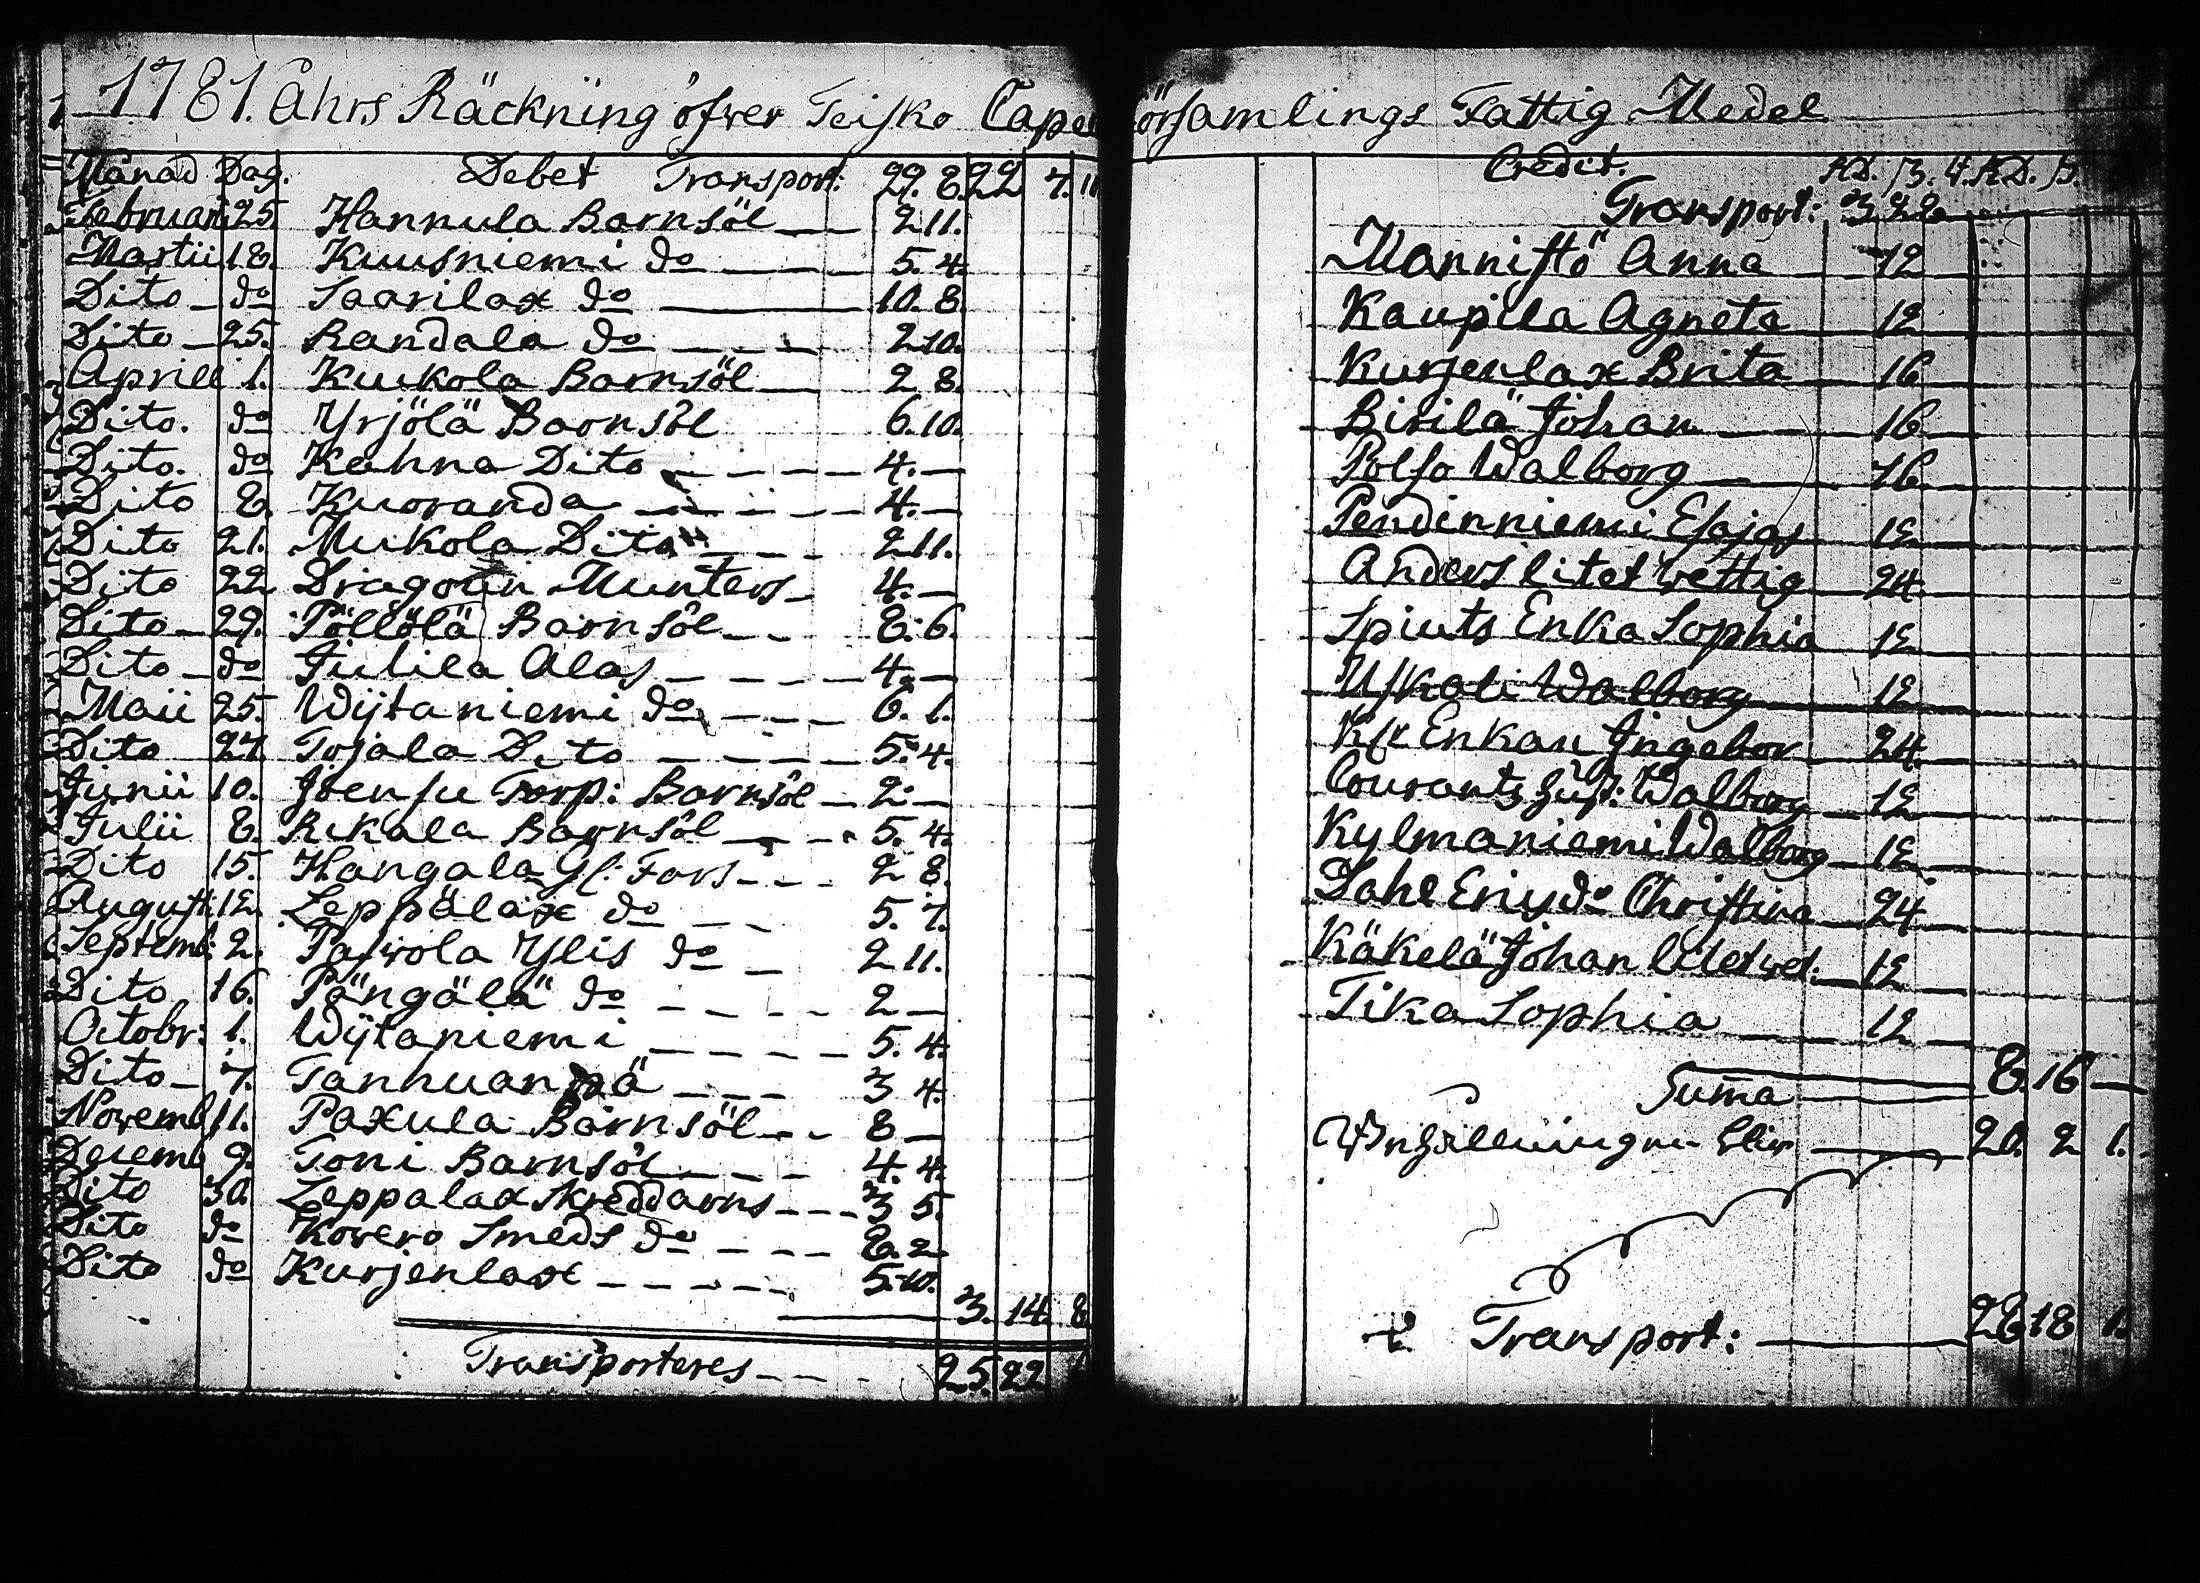 1781. Åhrs Räckning öfver Teisko Capell
Månad Dag. Debet Transport: 29. 8. 22 7. 11
Februari 25. Hannula Barnsöl 2 11.
Martii 18. Kuusniemi do 5. 4.
Dito do Saarilax do 10. 8.
Dito 25. Randala do 2 10.
Aprill 1. Kuukola Barnsöl 2 8.
Dito. do Yrjölä Barnsöl 6. 10.
Dito. do Kahna Dito 4. —
Dito 8. Kuoranda 4. —
Dito 21. Mukola Dito 2 11.
Dito 22 Dragoun Munters 4. —
Dito 29. Pöllölä Barnsöl 8. 6.
Dito do Julila Alas 4. —
Maii 25. Wijtaniemi do 6. 1.
Dito 27. Tojala Dito 5. 4.
Junii 10. Joensu Torp: Barnsöl 2 —
Julii 8. Rikala Barnsöl 5. 4.
Dito 15. Hangala Fors 2 8.
Augusti 12. Leppälax do 5. 7.
Septemb: 2. Pafvola Ylis do 2 11.
Dito 16. Pängälä do 2 —
Octobr: 1. Wijtaniemi 5. 4.
Dito 7. Tanhuanpä 3 4.
Novemb 11. Paxula Barnsöl 8 —
Decemb 9. Toni Barnsöl 4. 4.
Dito 30. Leppalax Skreddarns 3 5.
Dito do Kovero Smeds do 8. 2.
Dito do Kurjenlax 5. 10.
3. 14. 8
Transporteres 25. 22
församlings Fattig Medel
Credit. RD. ß. RD. ß.
Transport: 3 22
Mannistö Anna 12
Kaupila Agneta 12
Kurjenlax Brita 16
Birilä Johan 16
Polso Walborg 16
Pendinniemi Esajas 12
Anders litet wettig 24
Spiuts Enka Sophia 12
Uskali Walborg 12
Enkan Ingebor 24
Courants Walborg 12
Kylmaniemi Walborg 12
Dahl Christina 24
Käkelä Johan litet wet: 12
Tika Sophia 12
Suma 8. 16 —
20. 2 1.
Transport: 28 18 1.